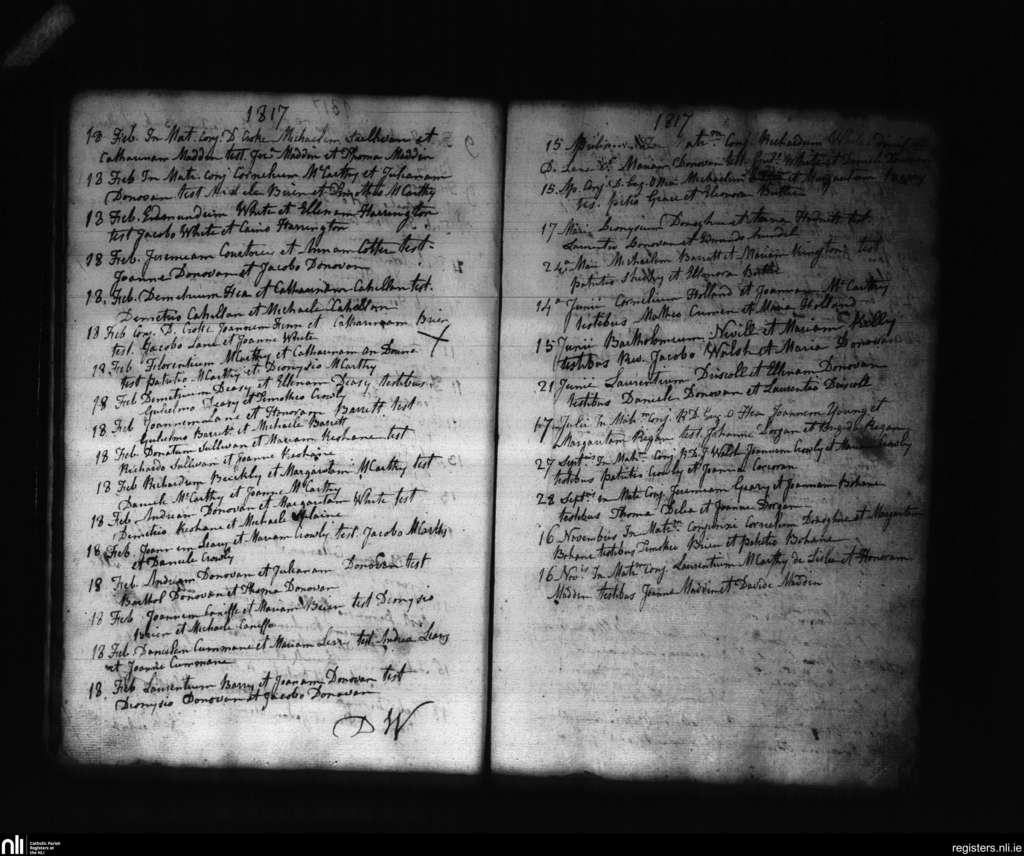 1817
18 Feb In Mat. Conj. D. Croke Michaelem Sullivan et
Catharinam Madden test. Joe Madden et Thoma Madden
13 Feb In Mat. Conj Cornelium McCarthy et Julianam
Donovan test Brien et Timotheo McCarthy
13 Feb. Edmundum White et Ellenam Harrington
test Jacobo White et Harrington
18 Feb. Jeremiam et Annam Cotter test
Joanne Donovan et Jacobo Donovan
18. Feb. Demetrium Hea et Catharinam Cahallan test.
Demetrio Cahallan et Michaele Cahallan
18 Feb Conj. D. Croke Joannem Finn et Catharinam Brien
test. Jacobo Lane et Joanne White
18. Feb. Florentium McCarthy et Catharinam
test Patritio McCarthy et Dionysio McCarthy
18 Feb Demetrium Deasy et Ellenam Deasy testibus
Gulielmo Deasy et Timotheo Crowly
18 Feb Joannem Lane et Honoram Barrett test
Gulielmo Barrett et Michaele Barrett
18 Feb. Donatum Sullivan et Mariam Keohane test
Richardo Sullivan et Joanne Keohane
18 Feb Richardum et Margaritam McCarthy test
Daniele McCarthy et Joanne McCarthy
18 Feb. Andream Donovan et Margaritam White test
Demetrio Keohane et Michaele
18 Feb. Joannem Leary et Mariam Crowly test. Jacobo McCarthy
et Daniele Crowly
18 Feb Andream Donovan et Julianam Donovan test
Barthol Donovan et Thoma Donovan
18 Feb. Joannem Caniffe et Mariam Brien test Dionysio
Brien et Michaele Caniffe
18 Feb. Danielem Cummane et Mariam Leary test Andrea Leary
et Joanne Cummane
18. Feb Laurentium Barry et Joanam Donovan test
Dionysio Donovan et Jacobo Donovan
D W
1817
15 Aprilis Conj. Richardum White
D. Lane Mariam Donovan test. White et Daniele
15. Ap. Conj. D. Eug. O Hea Michaelem et Margaritam
tes. Petro Grace et Elenora Butler
17 Maii Dionysium Donoghue et Annam test
Laurentio Donovan et Edmundo Arundel
24 Maii Michaelem Barrett et Mariam Kingston test
Patritio Sheehy et Elenora Butler
14 Junii Cornelium Holland et Joannam McCarthy
testibus Matheo et Maria Holland
15 Junii Bartholomeum Nevill et Mariam Kelly
testibus Rev. Jacobo Walsh et Maria Donovan
21 Junii Laurentium Driscoll et Ellenam Donovan
testibus Daniele Donovan et Laurentio Driscoll
17 Julii In Mat. Conj. R D Eug. O Hea Joannem Young et
Margaritam Regan test. Johanne et Brigida Regan
27 Septris In Mat. Conj R D J Walsh Joannem Crowly et Mariam Crowly
testibus Patritio Crowly et Joanna Corcoran
28 Septris in Mat Conj. Jeremiam Geary et Joannam Bohane
testibus Thoma et Joanne Dorgan
16 Novembris In Mat. Conjunxi Cornelium Donoghue et Margaritam
Bohane testibus Timotheo Brien et Patritio Bohane
16 Novris In Matm Conj Laurentium McCarthy de Lisles et Honoram
Madden testibus Joanne Madden et Davide Madden
nli
Catholic Parish
Registers at
the NLI
registers.nli.ie